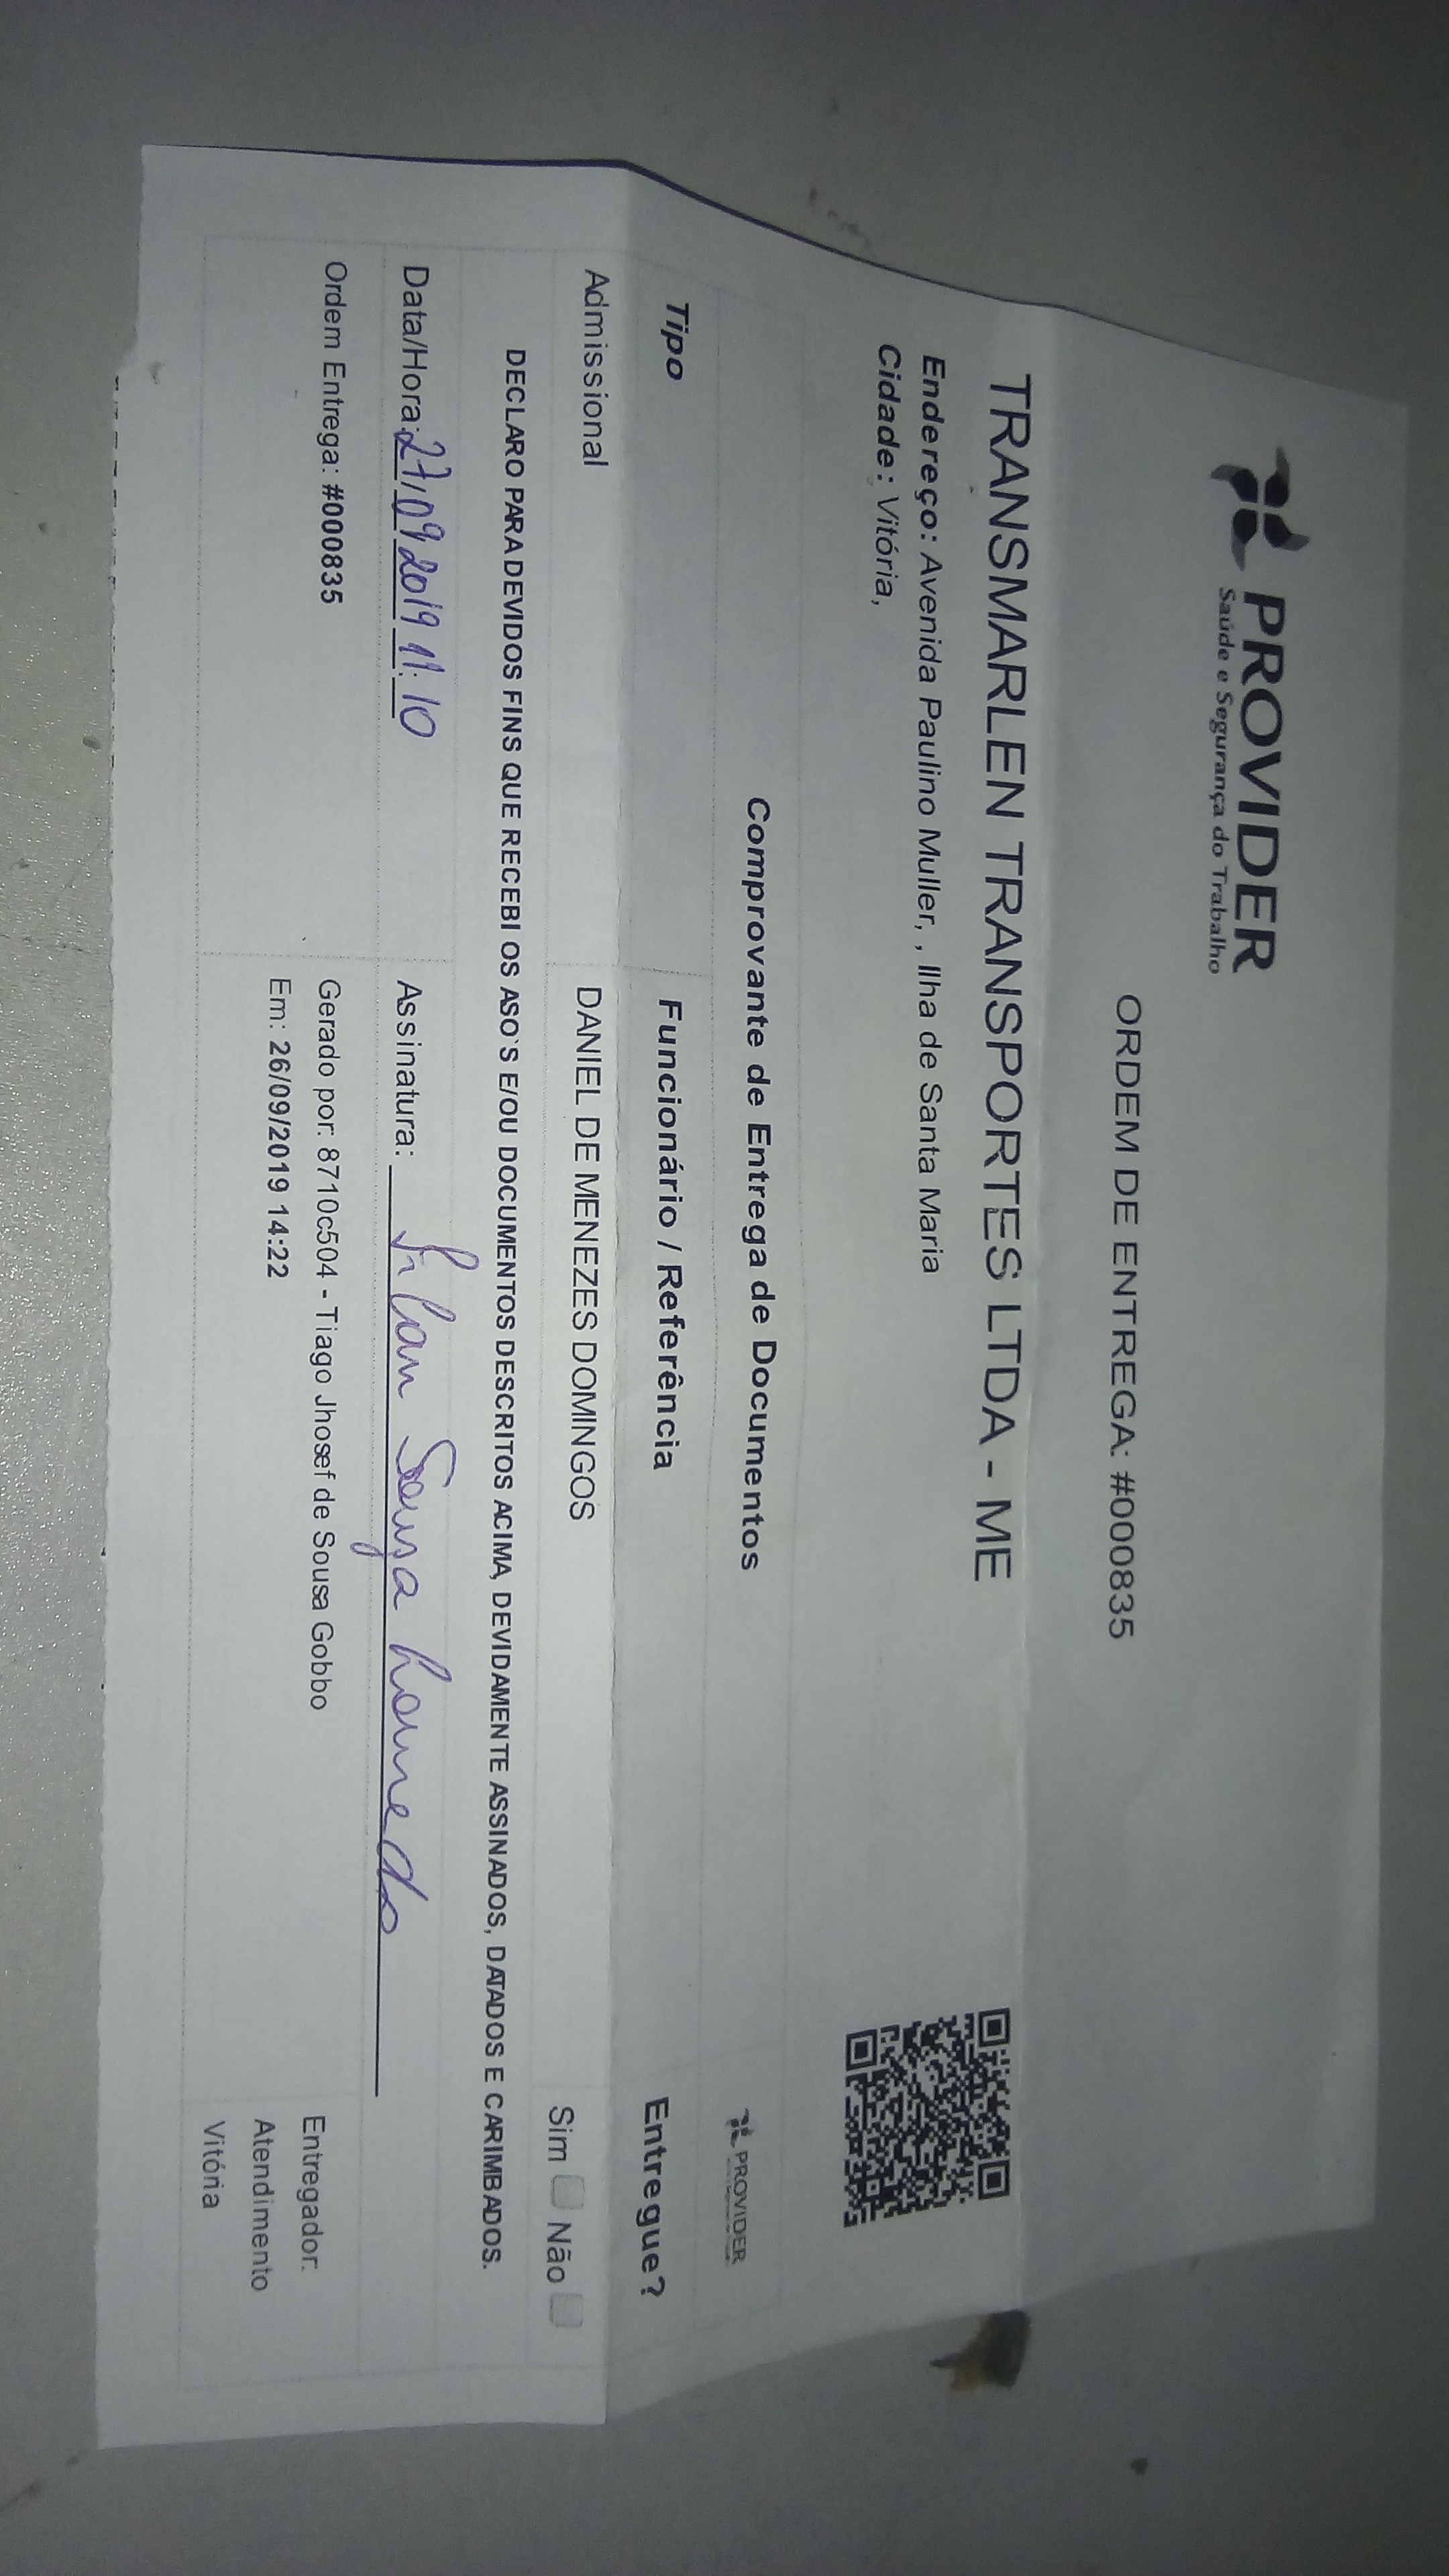 PROVIDER
Saúde e Segurança do Trabalho
ORDEM DE ENTREGA: #000835
TRANSMARLEN TRANSPORTES LTDA - ME
Endereço: Avenida Paulino Muller, , Ilha de Santa Maria
Cidade: Vitória,
Comprovante de Entrega de Documentos
PROVIDER
Tipo Funcionário / Referência Entregue?
Admissional DANIEL DE MENEZES DOMINGOS Sim Não
DECLARO PARA DEVIDOS FINS QUE RECEBI OS ASO'S E/OU DOCUMENTOS DESCRITOS ACIMA, DEVIDAMENTE ASSINADOS, DATADOS E CARIMBADOS.
Data/Hora: 27/09 2019 11:10 Assinatura: Souza
Ordem Entrega: #000835 Gerado por: 8710c504 - Tiago Jhosef de Sousa Gobbo Entregador:
Em: 26/09/2019 14:22 Atendimento
Vitória